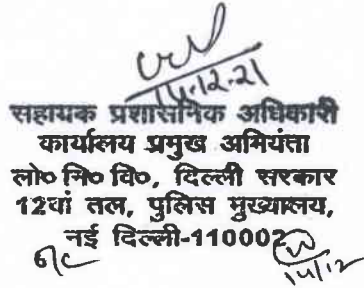 14-12-21
सहायक प्रशासनिक अधिकारी
कार्यालय प्रमुख अभियंता
लो० नि० वि०, दिल्ली सरकार
12वां तल, पुलिस मुख्यालय,
नई दिल्ली-110002
14/12